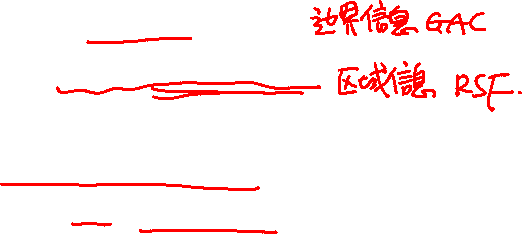 边界信息 GAC
区域信息 RSF.